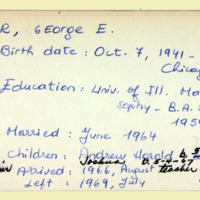 R, GEORGE E.
Birth date: Oct. 7, 1941 -
Chicag
Education: Univ. of Ill. Ma
sophy - B.A.
195
Married: June 1964
Children: Andrew Harold b.
Joshua D. 5-4-67
Arrived: 1966, August teacher
Left: 1969, July